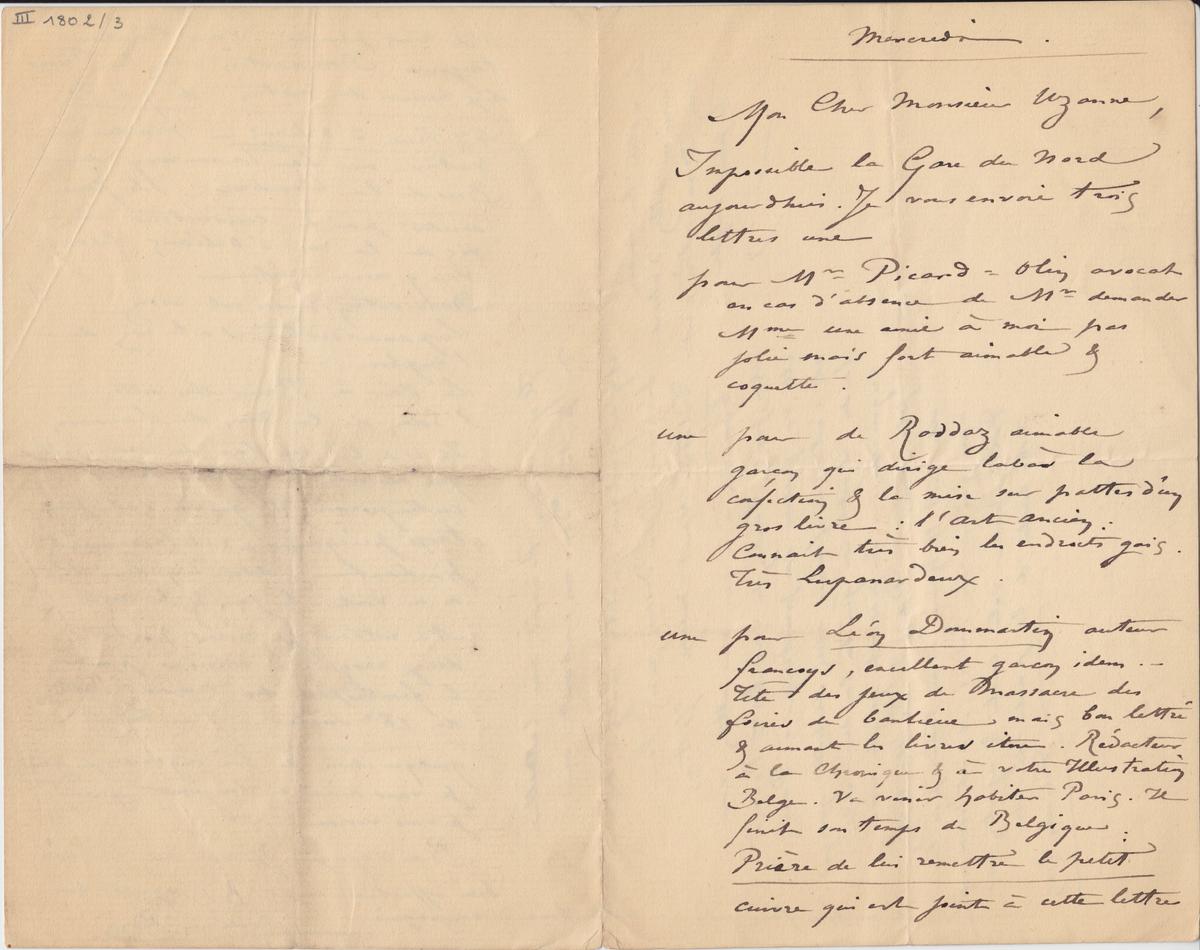 III 1802/3
Mercredi.
Mon Cher Monsieur Uzanne,
Impossible la Gare du Nord
aujourdhui. Je vous envoie trois
lettres une
pour Mr Picard = Olin avocat
en cas d'absence de Mr demander
Mme une amie à moi pas
jolie mais fort aimable &
coquette.
une pour de Roddaz aimable
garçon qui dirige labàs la
confection & la mise sur pattes d'un
gros livre : l'art ancien :
Connait très bien les endroits gais.
très Lupanardeux.
une pour Léon Dommartin auteur
françoys, excellent garçon idem. –
tête des jeux de Massacre des
foires de banlieue mais bon lettré
& aimant les livres item. Rédacteur
à la Chronique & à votre Illustration
Belge. Va venir habiter Paris. Il
finit son temps de Belgique :
Prière de lui remettre le petit
cuivre qui est joint à cette lettre